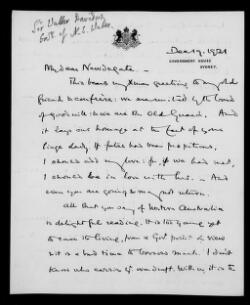 Sir Walter Davidson
Govt of N.S. Wales
Dec 19, 1921
GOVERNMENT HOUSE
SYDNEY.
My dear Newdegate -
This bears my Xmas greeting to my old
friend & confrère: we are united by the bond
of goodwill: we are the Old Guard. And
it lays our homage at the feet of your
Liege lady. If fates had been propitious,
I should add my love: for, if we had met,
I should be in love with her. - And
even you are going & may not return.
All that you say of Western Australia
is delightful reading. It is too young yet
to earn its living, from a Govt point of view
it is a bad time to borrow much. I don't
know who carries                With us it is the